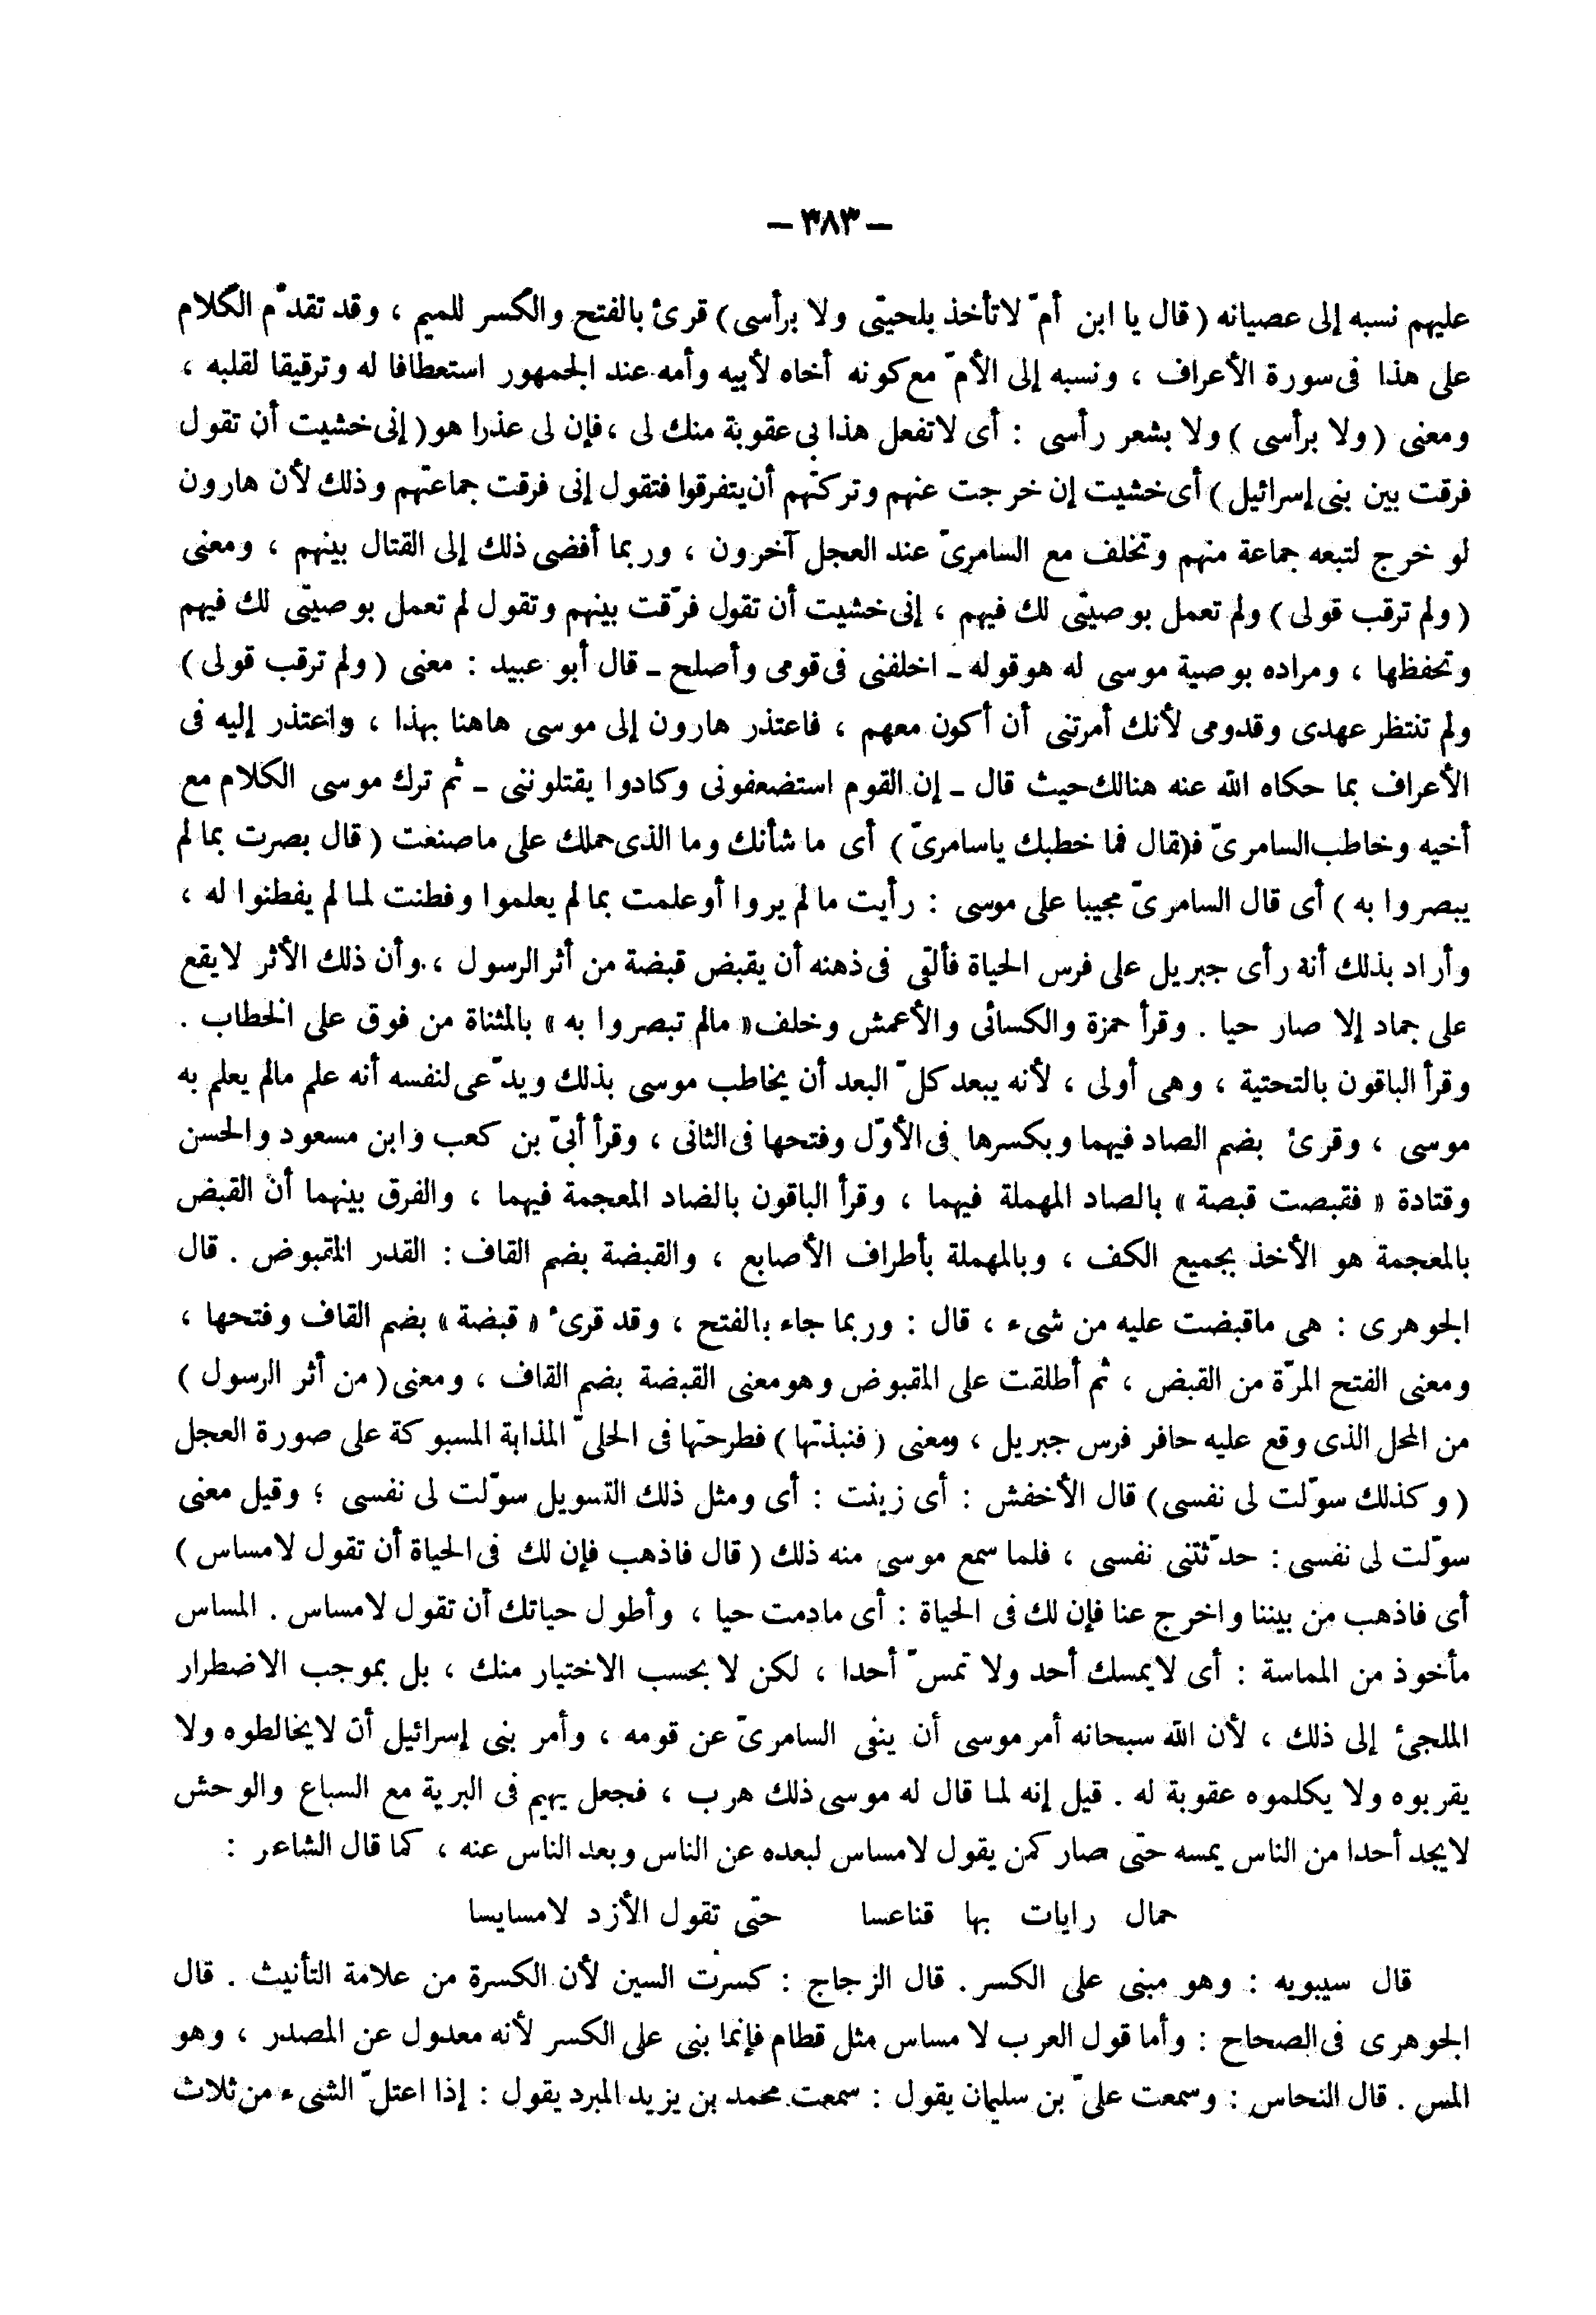 — ٣٨٣ —
عليهم نسبه إلى عصيانه ( قال يا ابن أمّ لاتأخذ بلحيتى ولا برأسى ) قرئ بالفتح والكسر للميم ، وقد تقدّم الكلام
على هذا فى سورة الأعراف ، ونسبه إلى الأمّ مع كونه أخاه لأبيه وأمه عند الجمهور استعطافا له وترقيقا لقلبه ،
ومعنى ( ولا برأسى ) ولا بشعر رأسى : أى لاتفعل هذا بى عقوبة منك لى ، فإن لى عذرا هو ( إنى خشيت أن تقول
فرقت بين بنى إسرائيل ) أى خشيت إن خرجت عنهم وتركتهم أن يتفرقوا فتقول إنى فرقت جماعتهم وذلك لأن هارون
لو خرج لتبعه جماعة منهم وتخلف مع السامرىّ عند العجل آخرون ، وربما أفضى ذلك إلى القتال بينهم ، ومعنى
( ولم ترقب قولى ) ولم تعمل بوصيتى لك فيهم ، إنى خشيت أن تقول فرّقت بينهم وتقول لم تعمل بوصيتى لك فيهم
وتحفظها ، ومراده بوصية موسى له هو قوله ـ اخلفنى فى قومى وأصلح ـ قال أبو عبيد : معنى ( ولم ترقب قولى )
ولم تنتظر عهدى وقدومى لأنك أمرتنى أن أكون معهم ، فاعتذر هارون إلى موسى هاهنا بهذا ، واعتذر إليه فى
الأعراف بما حكاه الله عنه هنالك حيث قال ـ إن القوم استضعفونى وكادوا يقتلوننى ـ ثم ترك موسى الكلام مع
أخيه وخاطب السامرىّ فـ(قال فما خطبك ياسامرىّ ) أى ما شأنك وما الذى حملك على ماصنعت ( قال بصرت بما لم
يبصروا به ) أى قال السامرىّ مجيبا على موسى : رأيت ما لم يروا أو علمت بما لم يعلموا وفطنت لما لم يفطنوا له ،
وأراد بذلك أنه رأى جبريل على فرس الحياة فألقى فى ذهنه أن يقبض قبضة من أثر الرسول ، وأن ذلك الأثر لايقع
على جماد إلا صار حيا . وقرأ حمزة والكسائى والأعمش وخلف « مالم تبصروا به » بالمثناة من فوق على الخطاب .
وقرأ الباقون بالتحتية ، وهى أولى ، لأنه يبعد كلّ البعد أن يخاطب موسى بذلك ويدّعى لنفسه أنه علم مالم يعلم به
موسى ، وقرئ بضم الصاد فيهما وبكسرها فى الأوّل وفتحها فى الثانى ، وقرأ أبىّ بن كعب وابن مسعود والحسن
وقتادة « فقبصت قبصة » بالصاد المهملة فيهما ، وقرأ الباقون بالضاد المعجمة فيهما ، والفرق بينهما أن القبض
بالمعجمة هو الأخذ بجميع الكف ، وبالمهملة بأطراف الأصابع ، والقبضة بضم القاف : القدر المقبوض . قال
الجوهرى : هى ماقبضت عليه من شىء ، قال : وربما جاء بالفتح ، وقد قرئ « قبضة » بضم القاف وفتحها ،
ومعنى الفتح المرّة من القبض ، ثم أطلقت على المقبوض وهو معنى القبضة بضم القاف ، ومعنى ( من أثر الرسول )
من المحل الذى وقع عليه حافر فرس جبريل ، ومعنى ( فنبذتها ) فطرحتها فى الحلىّ المذابة المسبوكة على صورة العجل
( وكذلك سوّلت لى نفسى ) قال الأخفش : أى زينت : أى ومثل ذلك التسويل سوّلت لى نفسى ؛ وقيل معنى
سوّلت لى نفسى : حدّثتنى نفسى ، فلما سمع موسى منه ذلك ( قال فاذهب فإن لك فى الحياة أن تقول لامساس )
أى فاذهب من بيننا واخرج عنا فإن لك فى الحياة : أى مادمت حيا ، وأطول حياتك أن تقول لامساس . المساس
مأخوذ من المماسة : أى لايمسك أحد ولا تمسّ أحدا ، لكن لا بحسب الاختيار منك ، بل بموجب الاضطرار
الملجئ إلى ذلك ، لأن الله سبحانه أمر موسى أن ينفى السامرىّ عن قومه ، وأمر بنى إسرائيل أن لايخالطوه ولا
يقربوه ولا يكلموه عقوبة له . قيل إنه لما قال له موسى ذلك هرب ، فجعل يهيم فى البرية مع السباع والوحش
لايجد أحدا من الناس يمسه حتى صار كمن يقول لامساس لبعده عن الناس وبعد الناس عنه ، كما قال الشاعر :
حمال رايات بها قناعسا حتى تقول الأزد لامسايسا
قال سيبويه : وهو مبنى على الكسر . قال الزجاج : كسرت السين لأن الكسرة من علامة التأنيث . قال
الجوهرى فى الصحاح : وأما قول العرب لا مساس مثل قطام فإنما بنى على الكسر لأنه معدول عن المصدر ، وهو
المس . قال النحاس : وسمعت علىّ بن سليمان يقول : سمعت محمد بن يزيد المبرد يقول : إذا اعتلّ الشىء من ثلاث